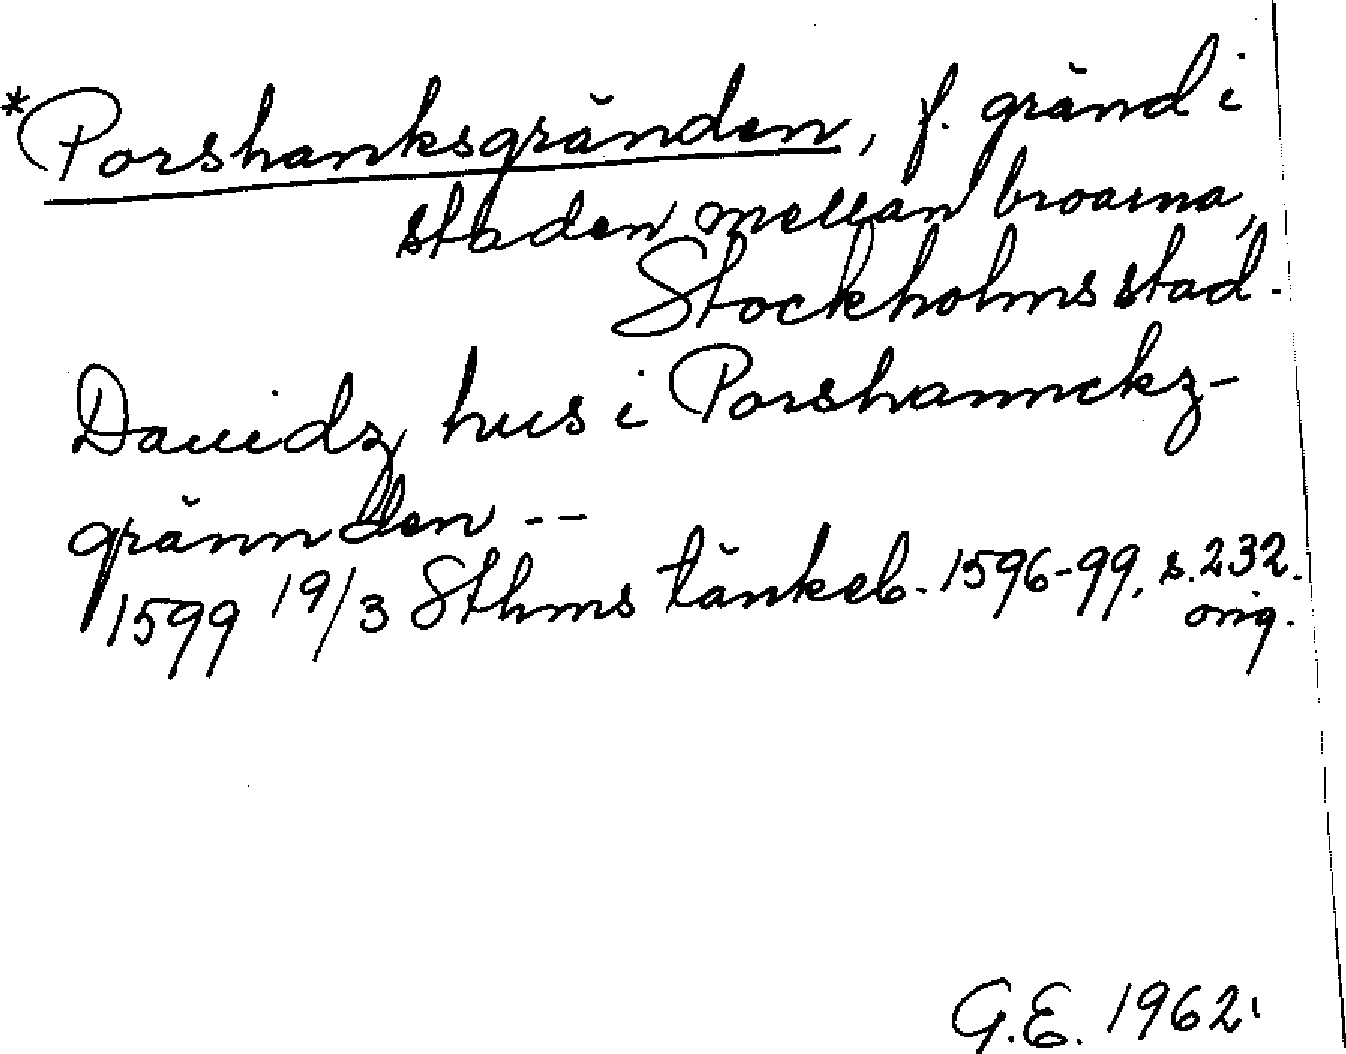 *Porshanksgränden, f. gränd i
staden mellan broarna,
Stockholms stad.
Dauidz hus i Porshannckz-
grännden --
1599 19/3 Sthms tänkeb. 1596-99, s. 232.
orig.
G.E. 1962.